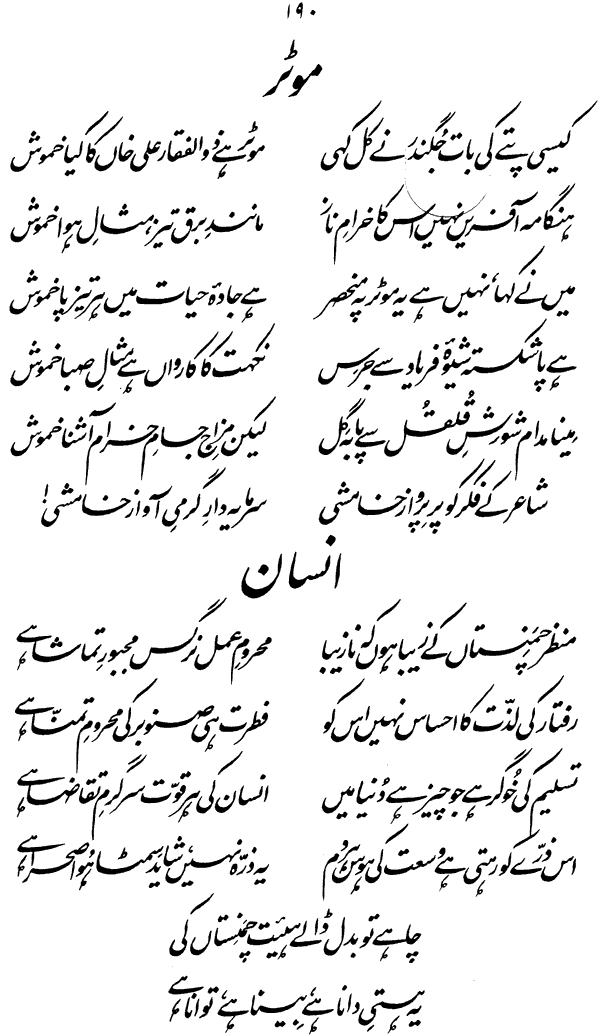 ۱۹۰
موٹر
کیسی پتے کی بات جُگندر نے کل کہی موٹر ہے ذوالفقار علی خاں کا کیا خموش
ہنگامہ آفریں نہیں اس کا خرامِ ناز مانندِ برق تیز، مثالِ ہوا خموش
میں نے کہا، نہیں ہے یہ موٹر پہ منحصر ہے جادۂ حیات میں ہر تیزپا خموش
ہے پا شکستہ شیوۂ فریاد سے جرس نکہت کا کارواں ہے مثالِ صبا خموش
مِینا مدام شورشِ قُلقُل سے پا بہ گِل لیکن مزاجِ جامِ خرام آشنا خموش
شاعر کے فکر کو پرِ پرواز خامشی سرمایہ دارِ گرمیِ آواز خامشی!
انسان
منظر چَمَنِستاں کے زیبا ہوں کہ نازیبا محرومِ عمل نرگس مجبورِ تماشا ہے
رفتار کی لذّت کا احساس نہیں اس کو فطرت ہی صنوبر کی محرومِ تمنّا ہے
تسلیم کی خُوگر ہے جو چیز ہے دُنیا میں انسان کی ہر قوّت سرگرمِ تقاضا ہے
اس ذرّے کو رہتی ہے وسعت کی ہوس ہر دم یہ ذرّہ نہیں، شاید سِمٹا ہُوا صحرا ہے
چاہے تو بدل ڈالے ہیئت چَمَنِستاں کی
یہ ہستیِ دانا ہے، بِینا ہے، توانا ہے